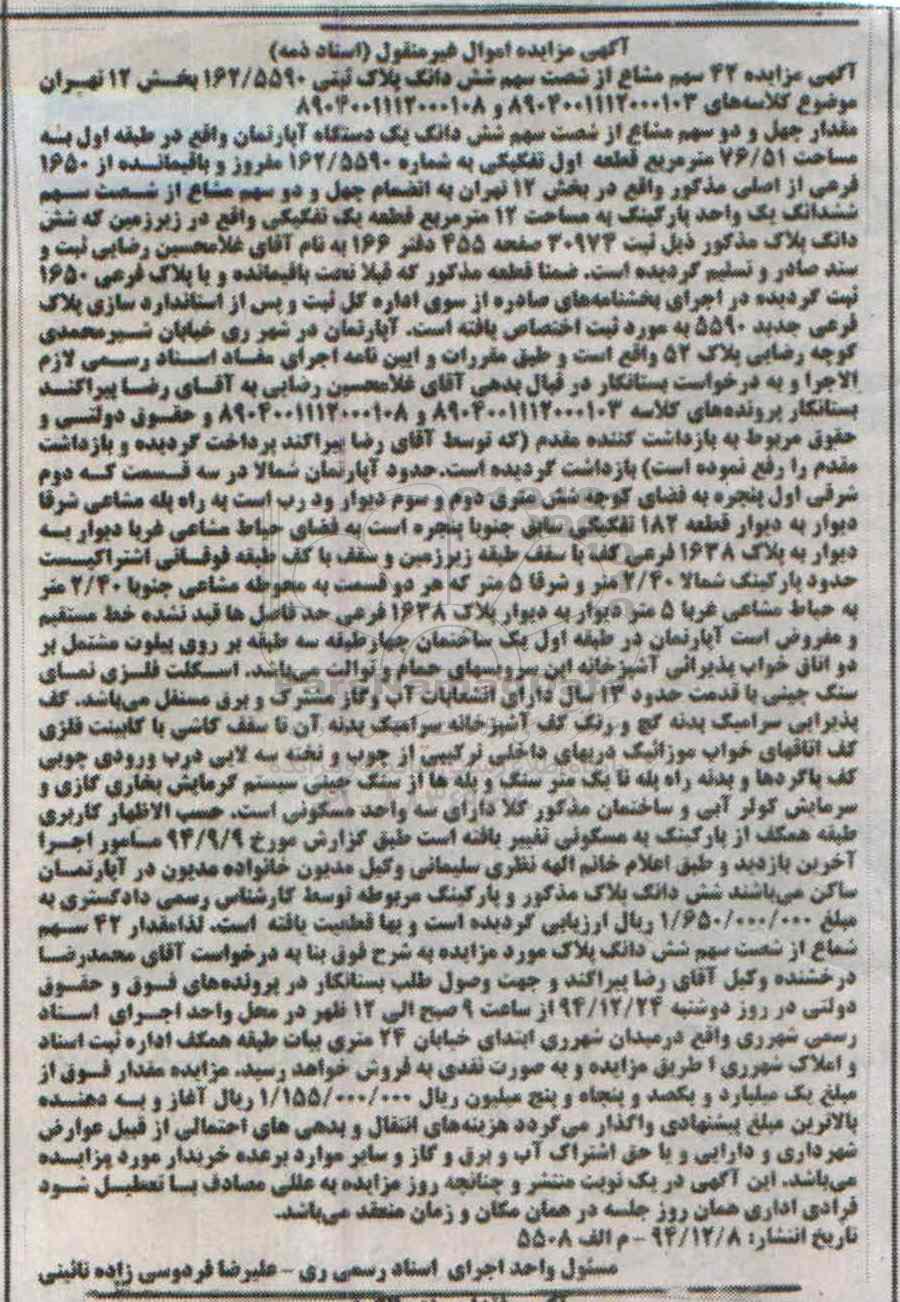 آگهی مزایده اموال غیرمنقول (اسناد ذمه)
آگهی مزایده ۴۲ سهم مشاع از شصت سهم شش دانگ پلاک ثبتی ۱۶۲/۵۵۹۰ بخش ۱۲ تهران
موضوع کلاسه‌های ۸۹۰۴۰۰۱۱۱۲۰۰۰۱۰۳ و ۸۹۰۴۰۰۱۱۱۲۰۰۰۱۰۸
مقدار چهل و دو سهم مشاع از شصت سهم شش دانگ یک دستگاه آپارتمان واقع در طبقه اول به
مساحت ۷۶/۵۱ مترمربع قطعه اول تفکیکی به شماره ۱۶۲/۵۵۹۰ مفروز و باقیمانده از ۱۶۵۰
فرعی از اصلی مذکور واقع در بخش ۱۲ تهران به انضمام چهل و دو سهم مشاع از شصت سهم
ششدانگ یک واحد پارکینگ به مساحت ۱۲ مترمربع قطعه یک تفکیکی واقع در زیرزمین که شش
دانگ پلاک مذکور ذیل ثبت ۳۰۹۷۳ صفحه ۴۵۵ دفتر ۱۶۶ به نام آقای غلامحسین رضایی ثبت و
سند صادر و تسلیم گردیده است. ضمنا قطعه مذکور که قبلا تحت باقیمانده و یا پلاک فرعی ۱۶۵۰
ثبت گردیده در اجرای بخشنامه‌های صادره از سوی اداره کل ثبت و پس از استاندارد سازی پلاک
فرعی جدید ۵۵۹۰ به مورد ثبت اختصاص یافته است. آپارتمان در شهر ری خیابان شیرمحمدی
کوچه رضایی پلاک ۵۲ واقع است و طبق مقررات و ایین نامه اجرای مفاد اسناد رسمی لازم
الاجرا و به درخواست بستانکار در قبال بدهی آقای غلامحسین رضایی به آقای رضا پیراکند
بستانکار پرونده‌های کلاسه ۸۹۰۴۰۰۱۱۱۲۰۰۰۱۰۳ و ۸۹۰۴۰۰۱۱۱۲۰۰۰۱۰۸ و حقوق دولتی و
حقوق مربوط به بازداشت کننده مقدم (که توسط آقای رضا پیراکند پرداخت گردیده و بازداشت
مقدم را رفع نموده است) بازداشت گردیده است.حدود آپارتمان شمالا در سه قسمت که دوم
شرقی اول پنجره به فضای کوچه شش متری دوم و سوم دیوار ودرب است به راه پله مشاعی شرقا
دیوار به دیوار قطعه ۱۸۲ تفکیکی سابق جنوبا پنجره است به فضای حیاط مشاعی غربا دیوار به
دیوار به پلاک ۱۶۳۸ فرعی کف با سقف طبقه زیرزمین و سقف با کف طبقه فوقانی اشتراکیست
حدود پارکینگ شمالا ۲/۴۰ متر و شرقا ۵ متر که هر دو قسمت به محوطه مشاعی جنوبا ۲/۴۰ متر
به حیاط مشاعی غربا ۵ متر دیوار به دیوار پلاک ۱۶۳۸ فرعی حد فاصل ها قید نشده خط مستقیم
و مفروض است آپارتمان در طبقه اول یک ساختمان چهارطبقه سه طبقه بر روی پیلوت مشتمل بر
دو اتاق خواب پذیرائی آشپزخانه این سرویسهای حمام و توالت می‌باشد. اسکلت فلزی نمای
سنگ چینی با قدمت حدود ۱۳ سال دارای انشعابات آب وگاز مشترک و برق مستقل می‌باشد. کف
پذیرایی سرامیک بدنه گچ و رنگ کف آشپزخانه سرامیک بدنه آن تا سقف کاشی با کابینت فلزی
کف اتاقهای خواب موزائیک دربهای داخلی ترکیبی از چوب و تخته سه لایی درب ورودی چوبی
کف پاگردها و بدنه راه پله تا یک متر سنگ و پله ها از سنگ چینی سیستم گرمایش بخاری گازی و
سرمایش کولر آبی و ساختمان مذکور کلا دارای سه واحد مسکونی است. حسب الاظهار کاربری
طبقه همکف از پارکینگ به مسکونی تغییر یافته است طبق گزارش مورخ ۹۴/۹/۹ مامور اجرا
آخرین بازدید و طبق اعلام خانم الهه نظری سلیمانی وکیل مدیون خانواده مدیون در آپارتمان
ساکن می‌باشند شش دانگ پلاک مذکور و پارکینگ مربوطه توسط کارشناس رسمی دادگستری به
مبلغ ۱/۶۵۰/۰۰۰/۰۰۰ ریال ارزیابی گردیده است و بها قطعیت یافته است. لذامقدار ۴۲ سهم
شماع از شصت سهم شش دانگ پلاک مورد مزایده به شرح فوق بنا به درخواست آقای محمدرضا
درخشنده وکیل آقای رضا پیراکند و جهت وصول طلب بستانکار در پرونده‌های فوق و حقوق
دولتی در روز دوشنبه ۹۴/۱۲/۲۴ از ساعت ۹ صبح الی ۱۲ ظهر در محل واحد اجرای اسناد
رسمی شهرری واقع درمیدان شهرری ابتدای خیابان ۲۴ متری بیات طبقه همکف اداره ثبت اسناد
و املاک شهرری ا طریق مزایده و به صورت نقدی به فروش خواهد رسید. مزایده مقدار فوق از
مبلغ یک میلیارد و یکصد و پنجاه و پنج میلیون ریال ۱/۱۵۵/۰۰۰/۰۰۰ ریال آغاز و به دهنده
بالاترین مبلغ پیشنهادی واگذار می‌گردد هزینه‌های انتقال و بدهی های احتمالی از قبیل عوارض
شهرداری و دارایی و یا حق اشتراک آب و برق و گاز و سایر موارد برعده خریدار مورد مزایسده
می‌باشد. این آگهی در یک نوبت منتشر و چنانچه روز مزایده به عللی مصادف با تعطیل شود
فرادی اداری همان روز جلسه در همان مکان و زمان منعقد می‌باشد.
تاریخ انتشار: ۹۴/۱۲/۸ - م الف ۵۵۰۸
مسئول واحد اجرای اسناد رسمی ری - علیرضا فردوسی زاده نائینی